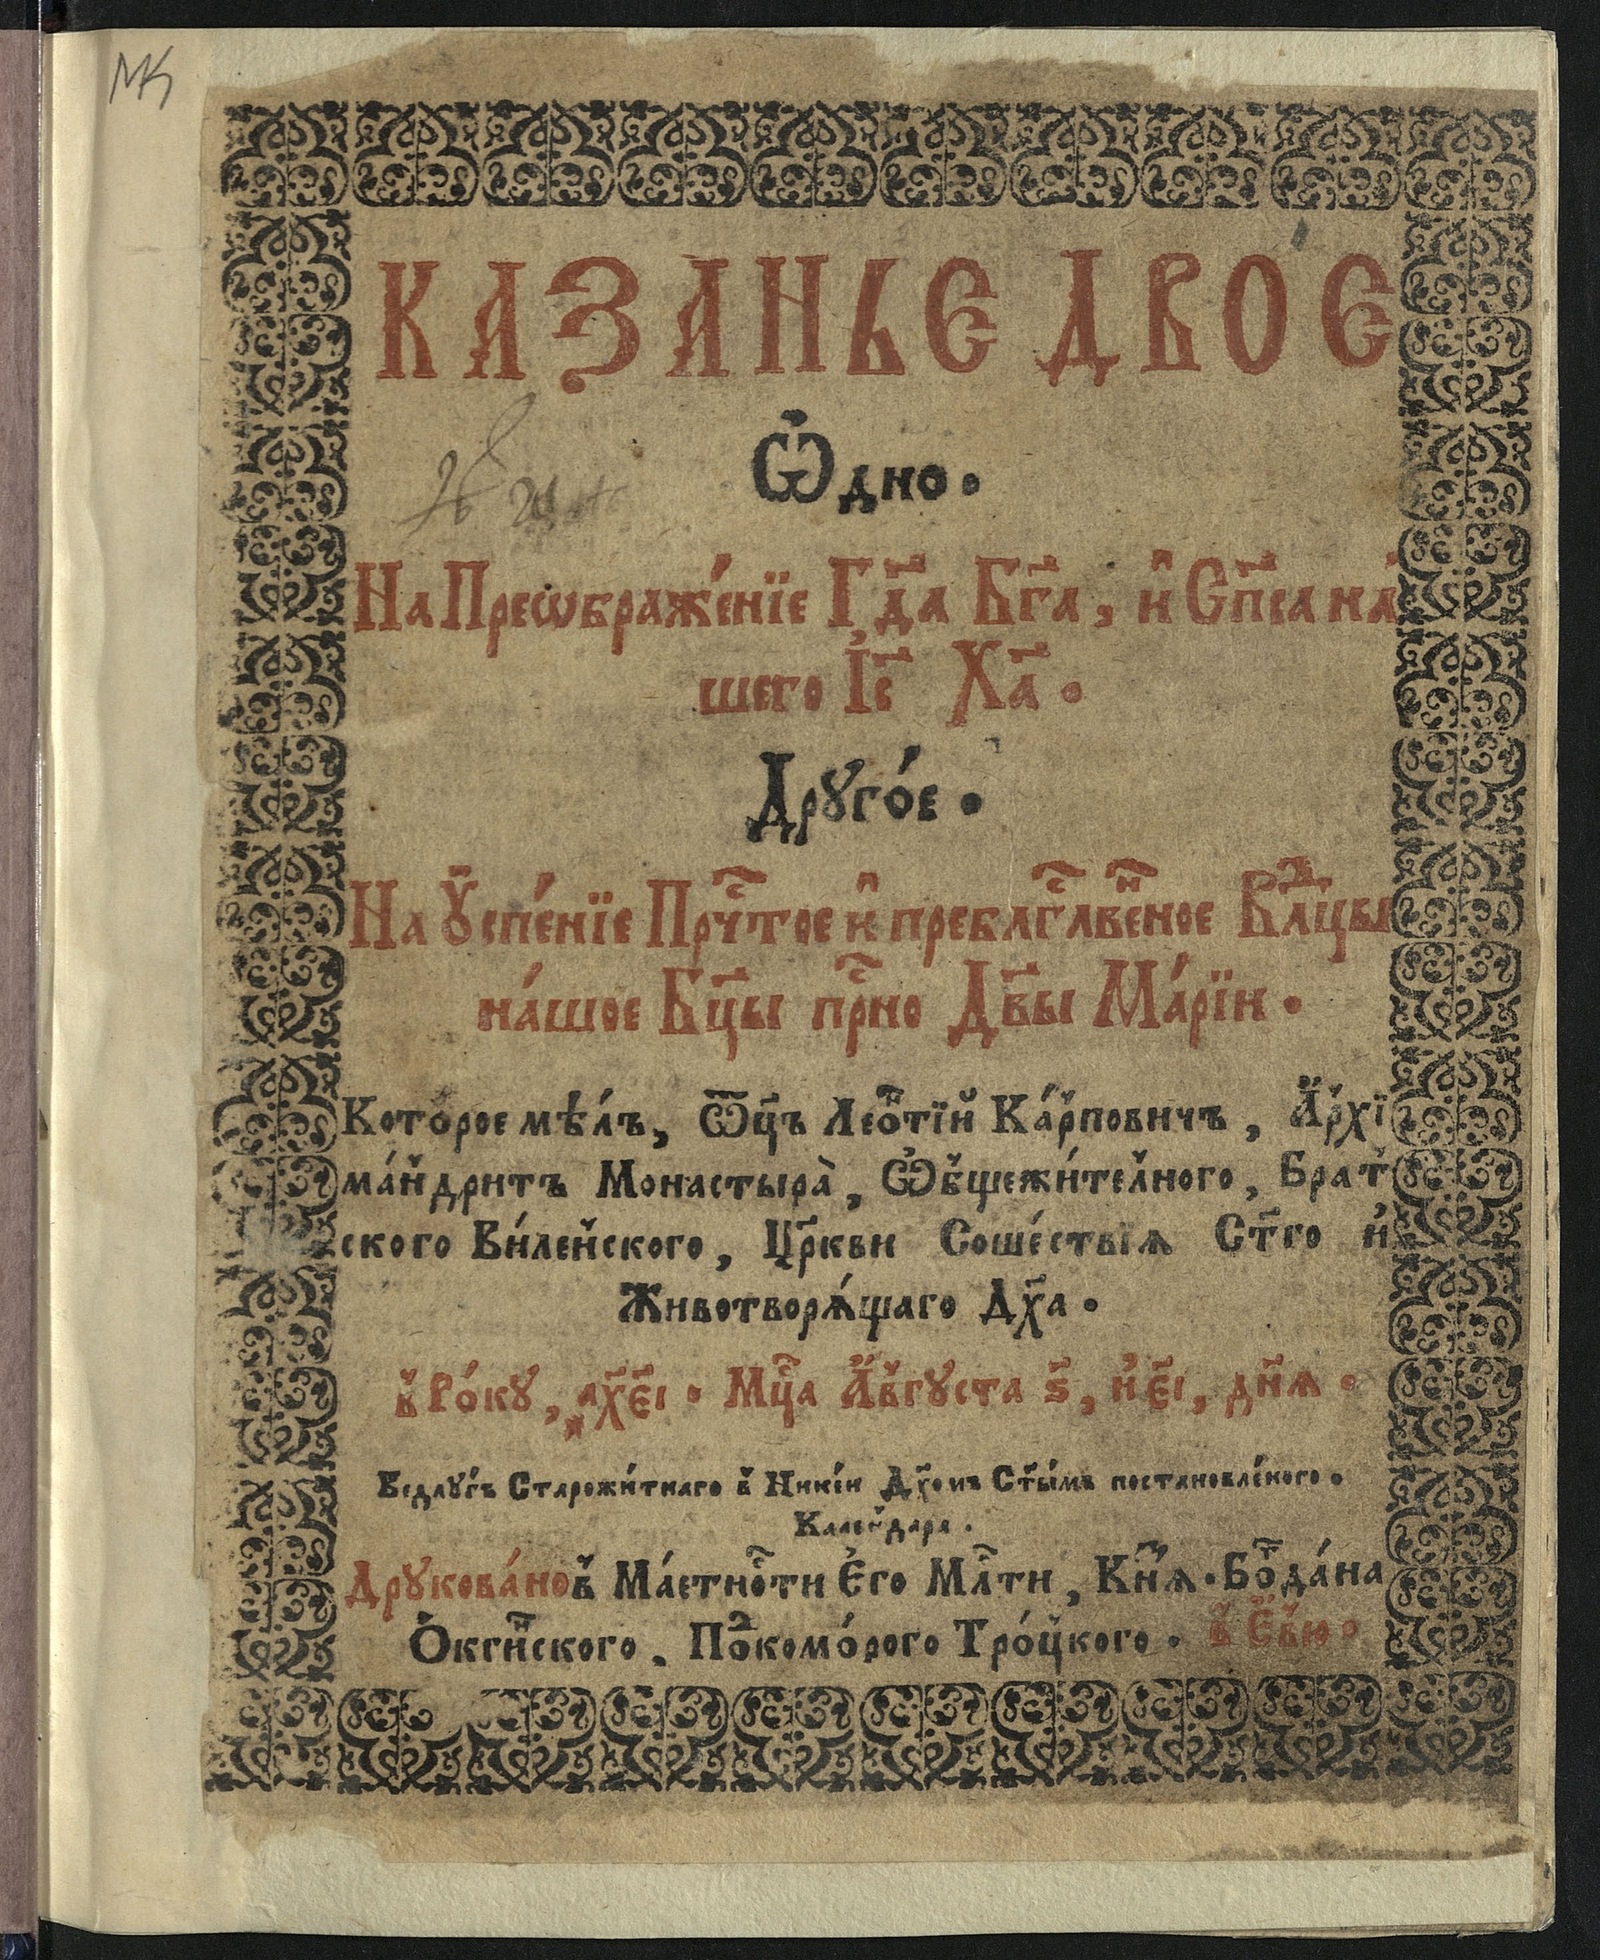 МК
КАЗАНЬЄ ДВОЄ
Ѡ҆дно.
На Преѡбраже́нїе Гд҃а Бг҃а, и҆ Сп҃са на́
шего І҆с҃ Ха҃.
Друго́е.
На Ꙋ҆спе́нїе Прⷱ҇тое и҆ преблгⷭ҇лвⷩ҇еное Влⷣцы
на́шое Бц҃ы прⷭ҇но Дв҃ы Ма́рїи.
Кото́рое мѣ́лъ, Ѿц҃ъ Леѻⷩ҇тїй Ка́рповичъ, А҆́рхї
ма́ндритъ Монастыра̀, Ѻ҆бщежи́телного, Брат
ского Ви́ленского, Цр҃кви Соше́ствїѧ Ст҃го и҆
Животворѧ́щаго Дх҃а.
в Ро́кꙋ, ҂ах҃є҃і. Мц҃а А҆́вгꙋста ѕ҃, и҆ є҃і, дн҃ѧ.
Ведлꙋгъ Старожи́тнаго в Нике́и Дх҃омъ Ст҃ы́мъ постановле́ного.
Календара.
Дрꙋкова́но в Ма́єтноⷭ҇ти Є҆го Млⷭ҇ти, Кнⷤ҇ѧ. Боⷢ҇да́на
Ѻ҆кгиⷩ҇ского, Поⷣкомо́рого Тро́цкого. в Є҆́вю.